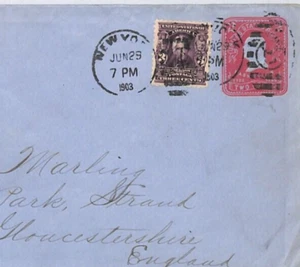 NEW YO
JUN 29
7 PM
1903
UN 29
PM
1903
THREE CENTS
Marling
Park, Stroud
Gloucestershire
England